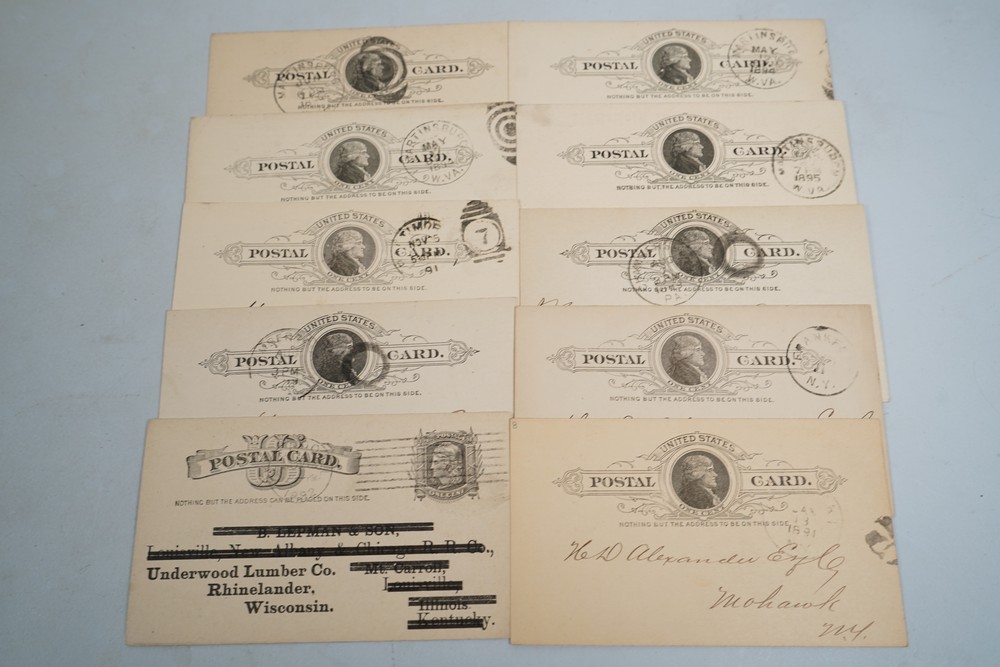 UNITED STATES
POSTAL CARD.
ONE CENT
NOTHING BUT THE ADDRESS TO BE ON THIS SIDE.
UNITED STATES
POSTAL CARD.
NOTHING BUT THE ADDRESS TO BE ON THIS SIDE.
MARTINSBURG
MAY
1894
W.VA.
UNITED STATES
POSTAL CARD.
ONE CENT
NOTHING BUT THE ADDRESS TO BE ON THIS SIDE.
MARTINSBURG
MAY
W.VA.
UNITED STATES
POSTAL CARD.
ONE CENT
NOTHING BUT THE ADDRESS TO BE ON THIS SIDE.
MARTINSBURG
1895
W.VA.
UNITED STATES
POSTAL CARD.
ONE CENT
NOTHING BUT THE ADDRESS TO BE ON THIS SIDE.
NOV
91
7
UNITED STATES
POSTAL CARD.
ONE CENT
NOTHING BUT THE ADDRESS TO BE ON THIS SIDE.
PA.
UNITED STATES
POSTAL CARD.
ONE CENT
NOTHING BUT THE ADDRESS TO BE ON THIS SIDE.
PM
UNITED STATES
POSTAL CARD.
ONE CENT
NOTHING BUT THE ADDRESS TO BE ON THIS SIDE.
N.Y.
POSTAL CARD.
US
NOTHING BUT THE ADDRESS CAN BE PLACED ON THIS SIDE.
B. LEPMAN & SON,
Louisville, New Albany & Chicago R. R. Co.,
Underwood Lumber Co. Mt. Carroll,
Rhinelander, Louisville,
Wisconsin. Illinois.
Kentucky.
UNITED STATES
POSTAL CARD.
ONE CENT
NOTHING BUT THE ADDRESS TO BE ON THIS SIDE.
H D Alexander Esq
Mohawk
N.Y.